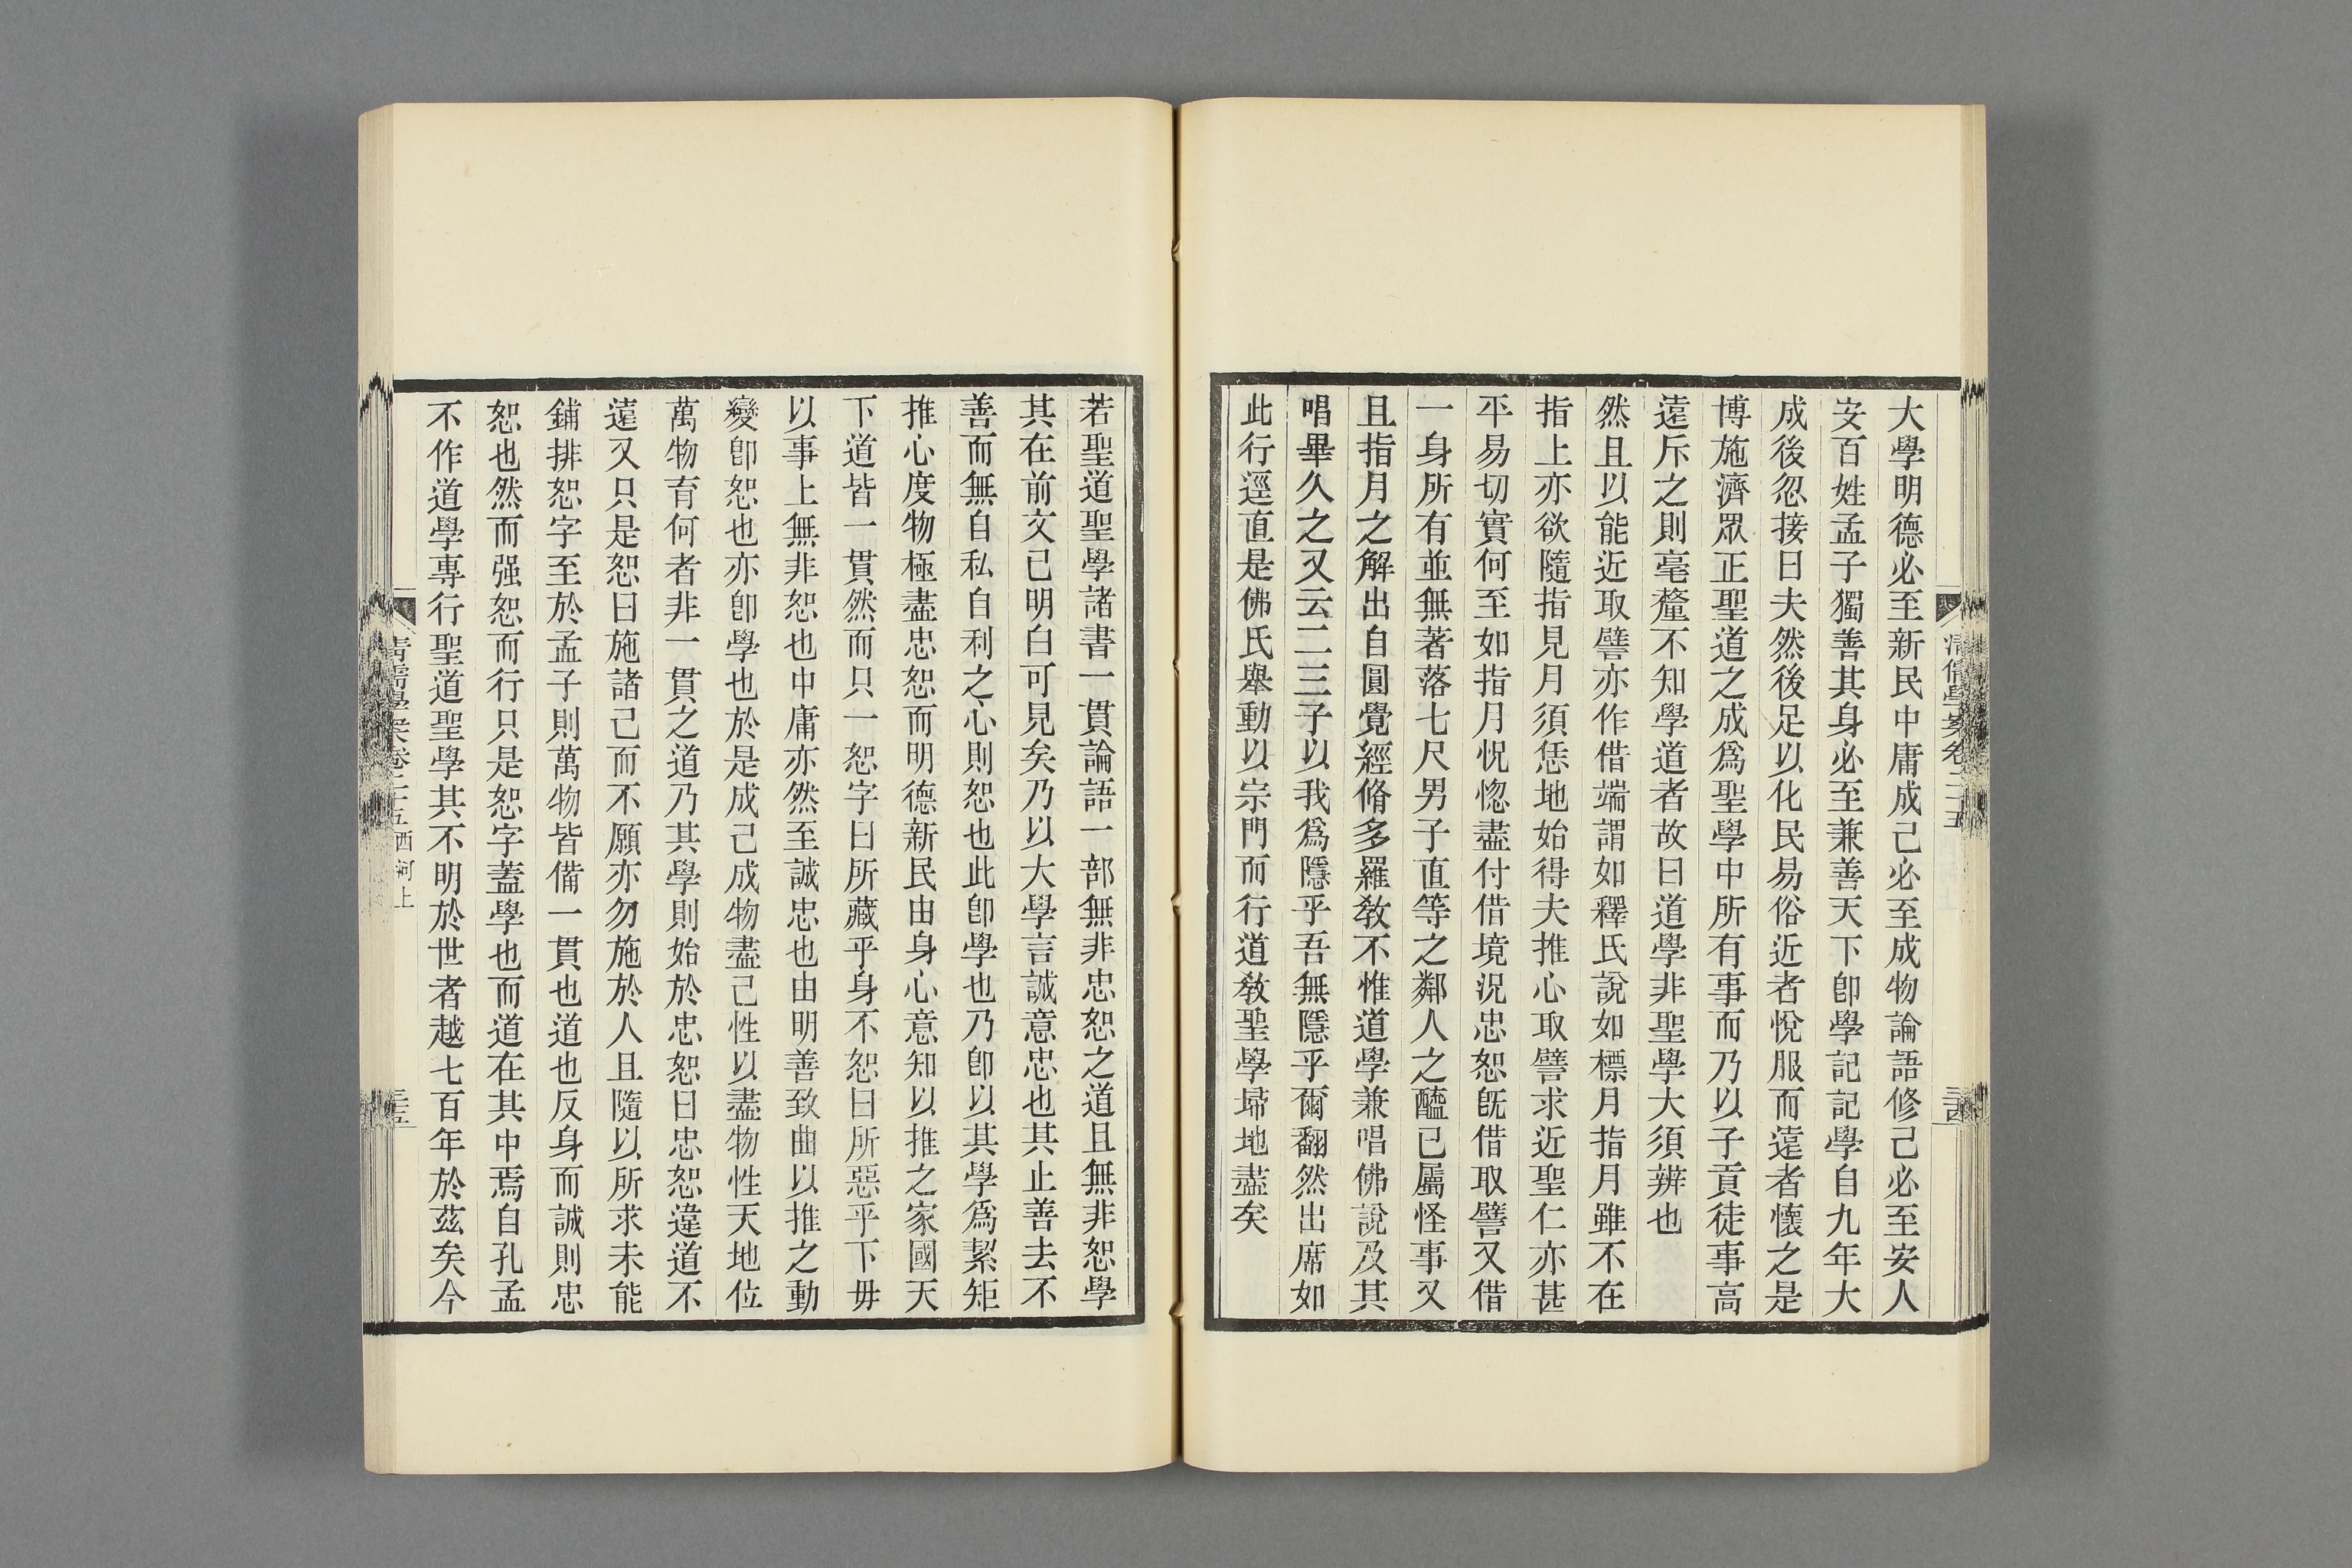 大學明德必至新民中庸成己必至成物論語修己必至安人
安百姓孟子獨善其身必至兼善天下卽學記記學自九年大
成後忽接曰夫然後足以化民易俗近者悅服而遠者懷之是
博施濟眾正聖道之成爲聖學中所有事而乃以子貢徒事高
遠斥之則毫釐不知學道者故曰道學非聖學大須辨也
然且以能近取譬亦作借端謂如釋氏說如標月指月雖不在
指上亦欲隨指見月須恁地始得夫推心取譬求近聖仁亦甚
平易切實何至如指月怳惚盡付借境況忠恕旣借取譬又借
一身所有並無著落七尺男子直等之鄰人之醯已屬怪事又
且指月之解出自圓覺經脩多羅教不惟道學兼唱佛說及其
唱畢久之又云二三子以我爲隱乎吾無隱乎爾翻然出席如
此行逕直是佛氏舉動以宗門而行道教聖學埽地盡矣
清儒學案卷二十五
三四
若聖道聖學諸書一貫論語一部無非忠恕之道且無非恕學
其在前文已明白可見矣乃以大學言誠意忠也其止善去不
善而無自私自利之心則恕也此卽學也乃卽以其學爲絜矩
推心度物極盡忠恕而明德新民由身心意知以推之家國天
下道皆一貫然而只一恕字曰所藏乎身不恕曰所惡乎下毋
以事上無非恕也中庸亦然至誠忠也由明善致曲以推之動
變卽恕也亦卽學也於是成己成物盡己性以盡物性天地位
萬物育何者非一貫之道乃其學則始於忠恕曰忠恕違道不
遠又只是恕曰施諸己而不願亦勿施於人且隨以所求未能
鋪排恕字至於孟子則萬物皆備一貫也道也反身而誠則忠
恕也然而强恕而行只是恕字蓋學也而道在其中焉自孔孟
不作道學專行聖道聖學其不明於世者越七百年於茲矣今
清儒學案卷二十五 西河上
三五